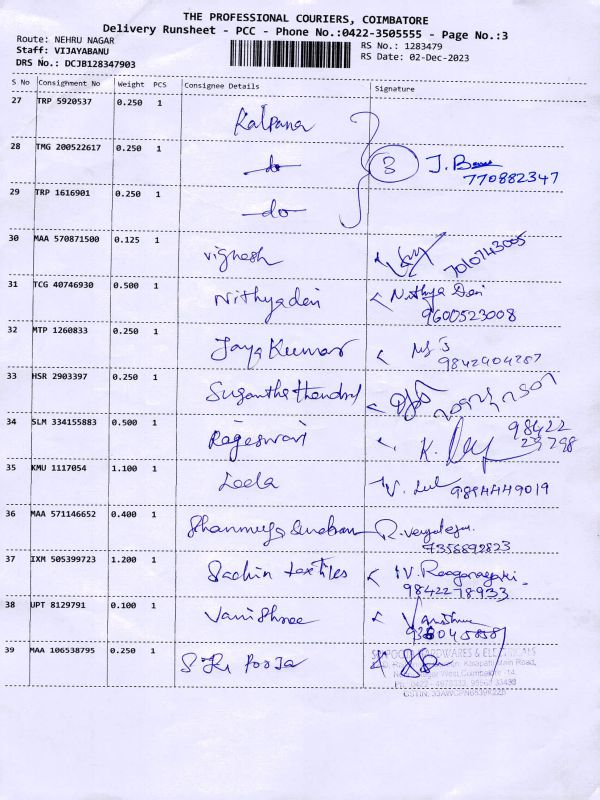 THE PROFESSIONAL COURIERS, COIMBATORE
Delivery Runsheet - PCC - Phone No.:0422-3505555 - Page No.:3
Route: NEHRU NAGAR
RS No.: 1283479
Staff: VIJAYABANU
RS Date: 02-Dec-2023
DRS No.: DCJB128347903
S No Consignment No Weight PCS Consignee Details Signature
27 TRP 5920537 0.250 1 Kalpana
28 TMG 200522617 0.250 1 do 3 J.
770882347
29 TRP 1616901 0.250 1 do
30 MAA 570871500 0.125 1 Vignesh 7010743005
31 TCG 40746930 0.500 1 Nithyadevi Nithya Devi
9600523008
32 MTP 1260833 0.250 1 Jaya Kumar
33 HSR 2903397 0.250 1
34 SLM 334155883 0.500 1 Rajeswari K. 98422
35 KMU 1117054 1.100 1 Leela 9894449019
36 MAA 571146652 0.400 1 R.
7358692823
37 IXM 505399723 1.200 1 Sachin textiles
9842278933
38 UPT 8129791 0.100 1 Vanishree
39 MAA 106538795 0.250 1 Sri Pooja